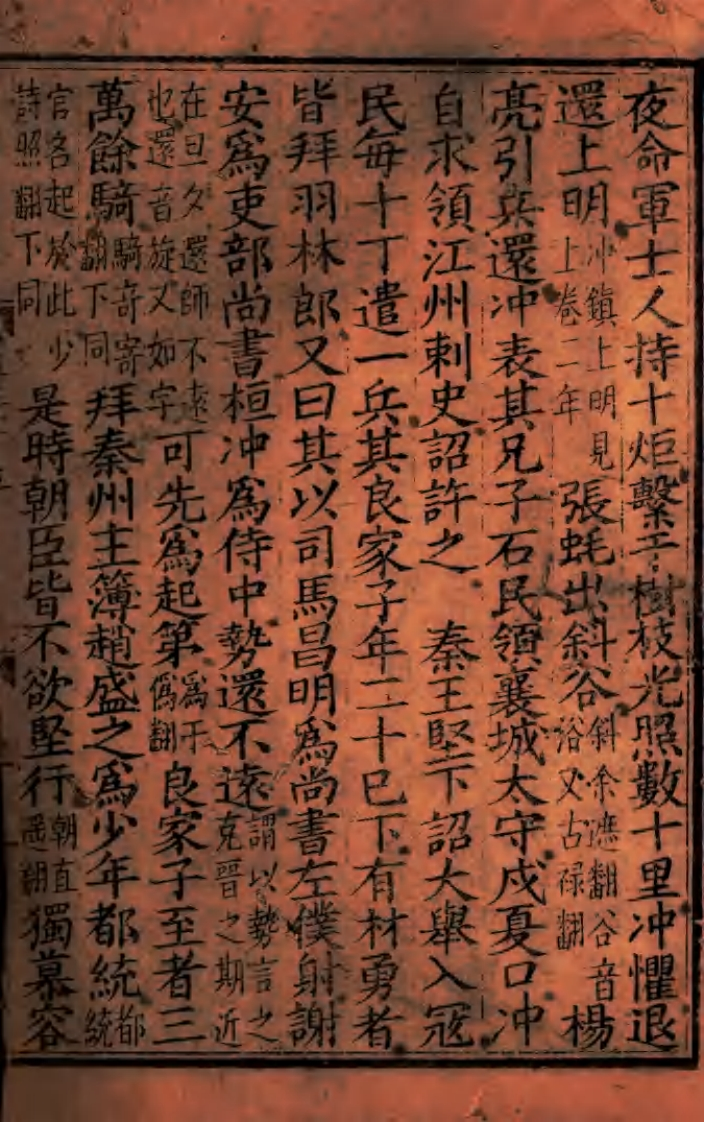 夜命軍士人持十炬繫于樹枝光照數十里冲懼退
還上明冲鎮上明見上卷二年張蚝出斜谷斜余遮翻谷音浴又古祿翻楊
亮引兵還冲表其兄子石民領襄城太守戍夏口冲
自求領江州刺史詔許之 秦王堅下詔大舉入寇
民每十丁遣一兵其良家子年二十已下有材勇者
皆拜羽林郎又曰其以司馬昌明爲尚書左僕射謝
安爲吏部尚書桓冲爲侍中勢還不遠謂以勢言之克晉之期近
在旦夕還師不遠也還音旋又如字可先爲起第爲于僞翻良家子至者三
萬餘騎騎奇寄翻下同拜秦州主簿趙盛之爲少年都統都統
官名起於此少詩照翻下同是時朝臣皆不欲堅行朝直遥翻獨慕容